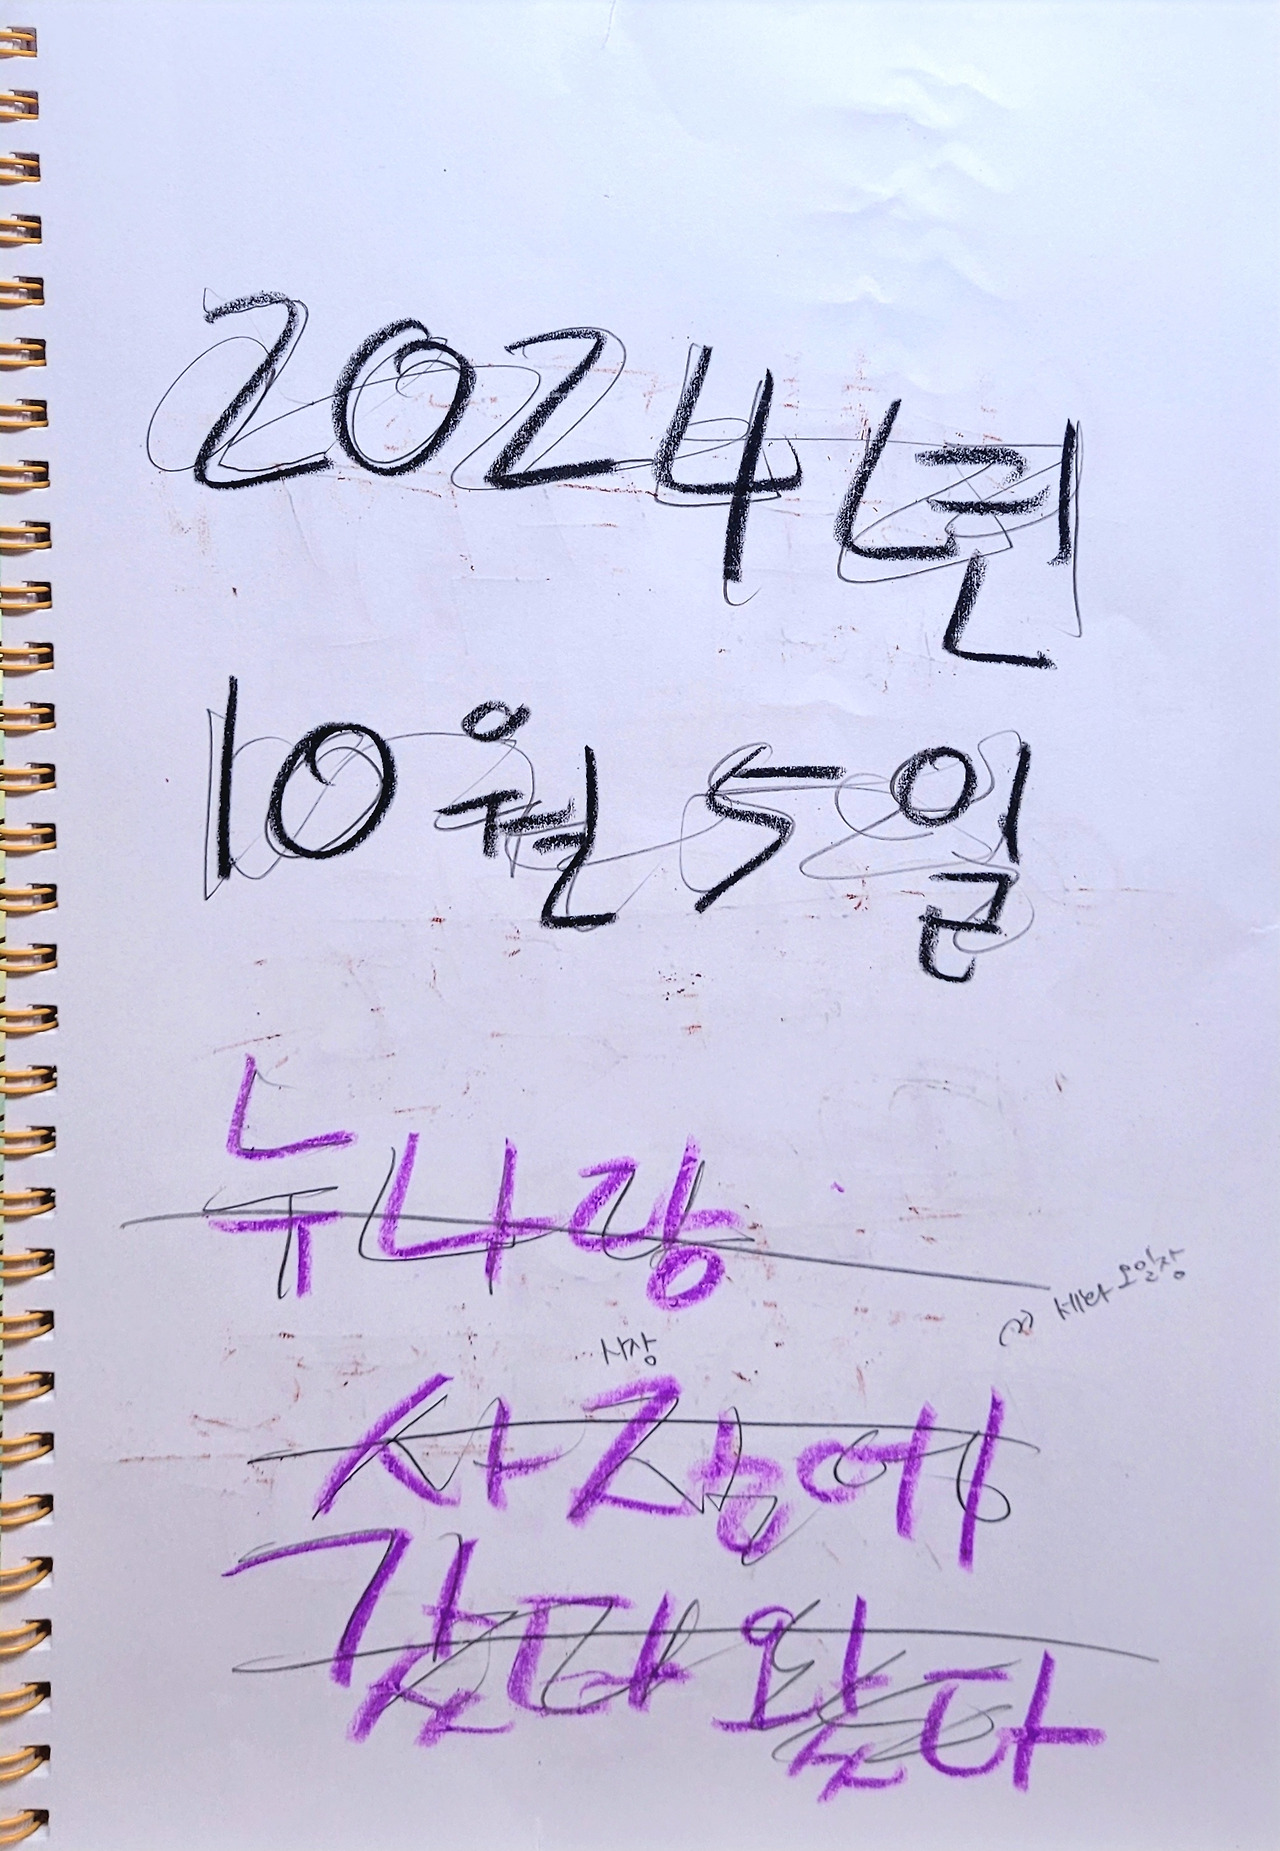 2024년
10월 5일
누나랑
세화 오일장
시장
사장에
갔다 왔다